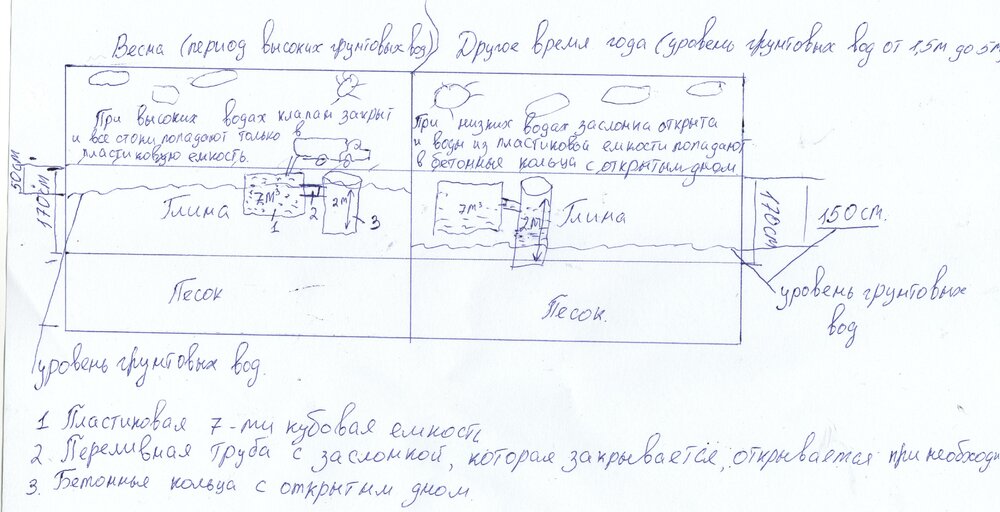 Весна (период высоких грунтовых вод)
Другое время года (уровень грунтовых вод от 1,5м до 5м)
При высоких водах клапан закрыт
и все стоки попадают только в
пластиковую емкость.
При низких водах заслонка открыта
и воды из пластиковой емкости попадают
в бетонные кольца с открытым дном
50см
170см
Глина
7м³
1
2
2м
3
7м³
2м
Глина
170см
150см.
Песок
Песок.
уровень грунтовых
вод
уровень грунтовых вод.
1 Пластиковая 7-ми кубовая емкость
2. Переливная труба с заслонкой, которая закрывается, открывается при необходи
3. Бетонные кольца с открытым дном.